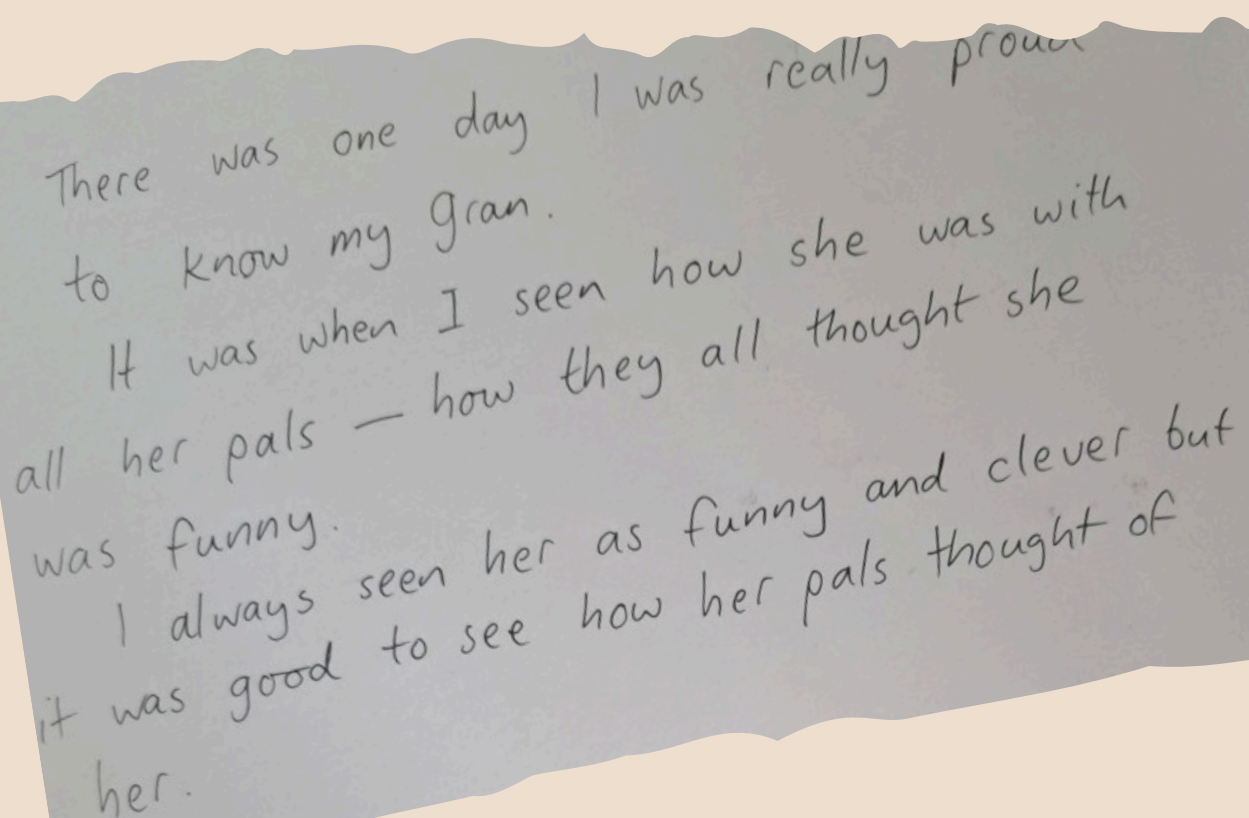 There was one day I was really proud
to know my gran.
It was when I seen how she was with
all her pals — how they all thought she
was funny.
I always seen her as funny and clever but
it was good to see how her pals thought of
her.